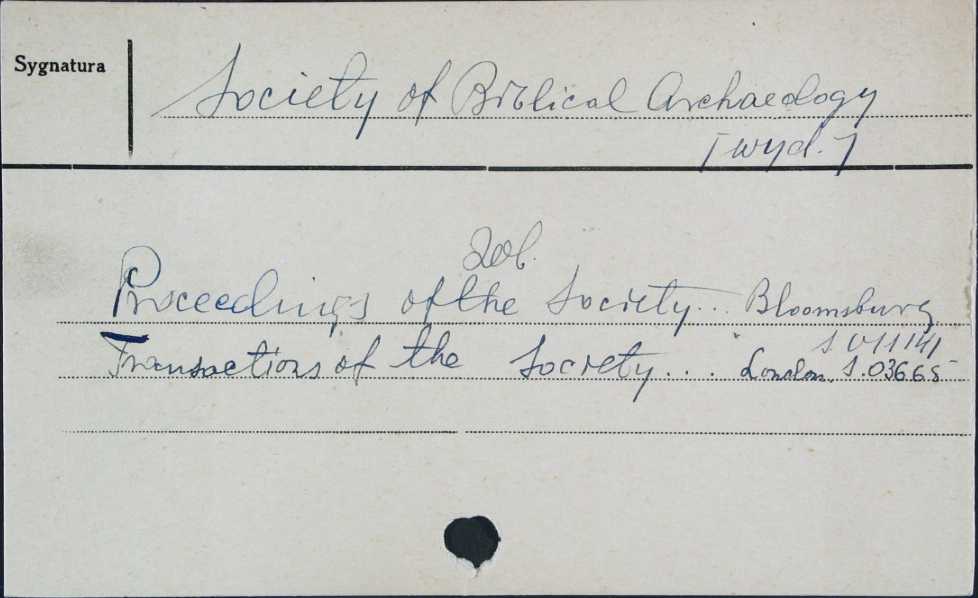 Sygnatura
Society of Biblical Archaeology
[wyd.]
zob.
Proceedings of the Society... Bloomsburg
Transactions of the Society... London. S.03665